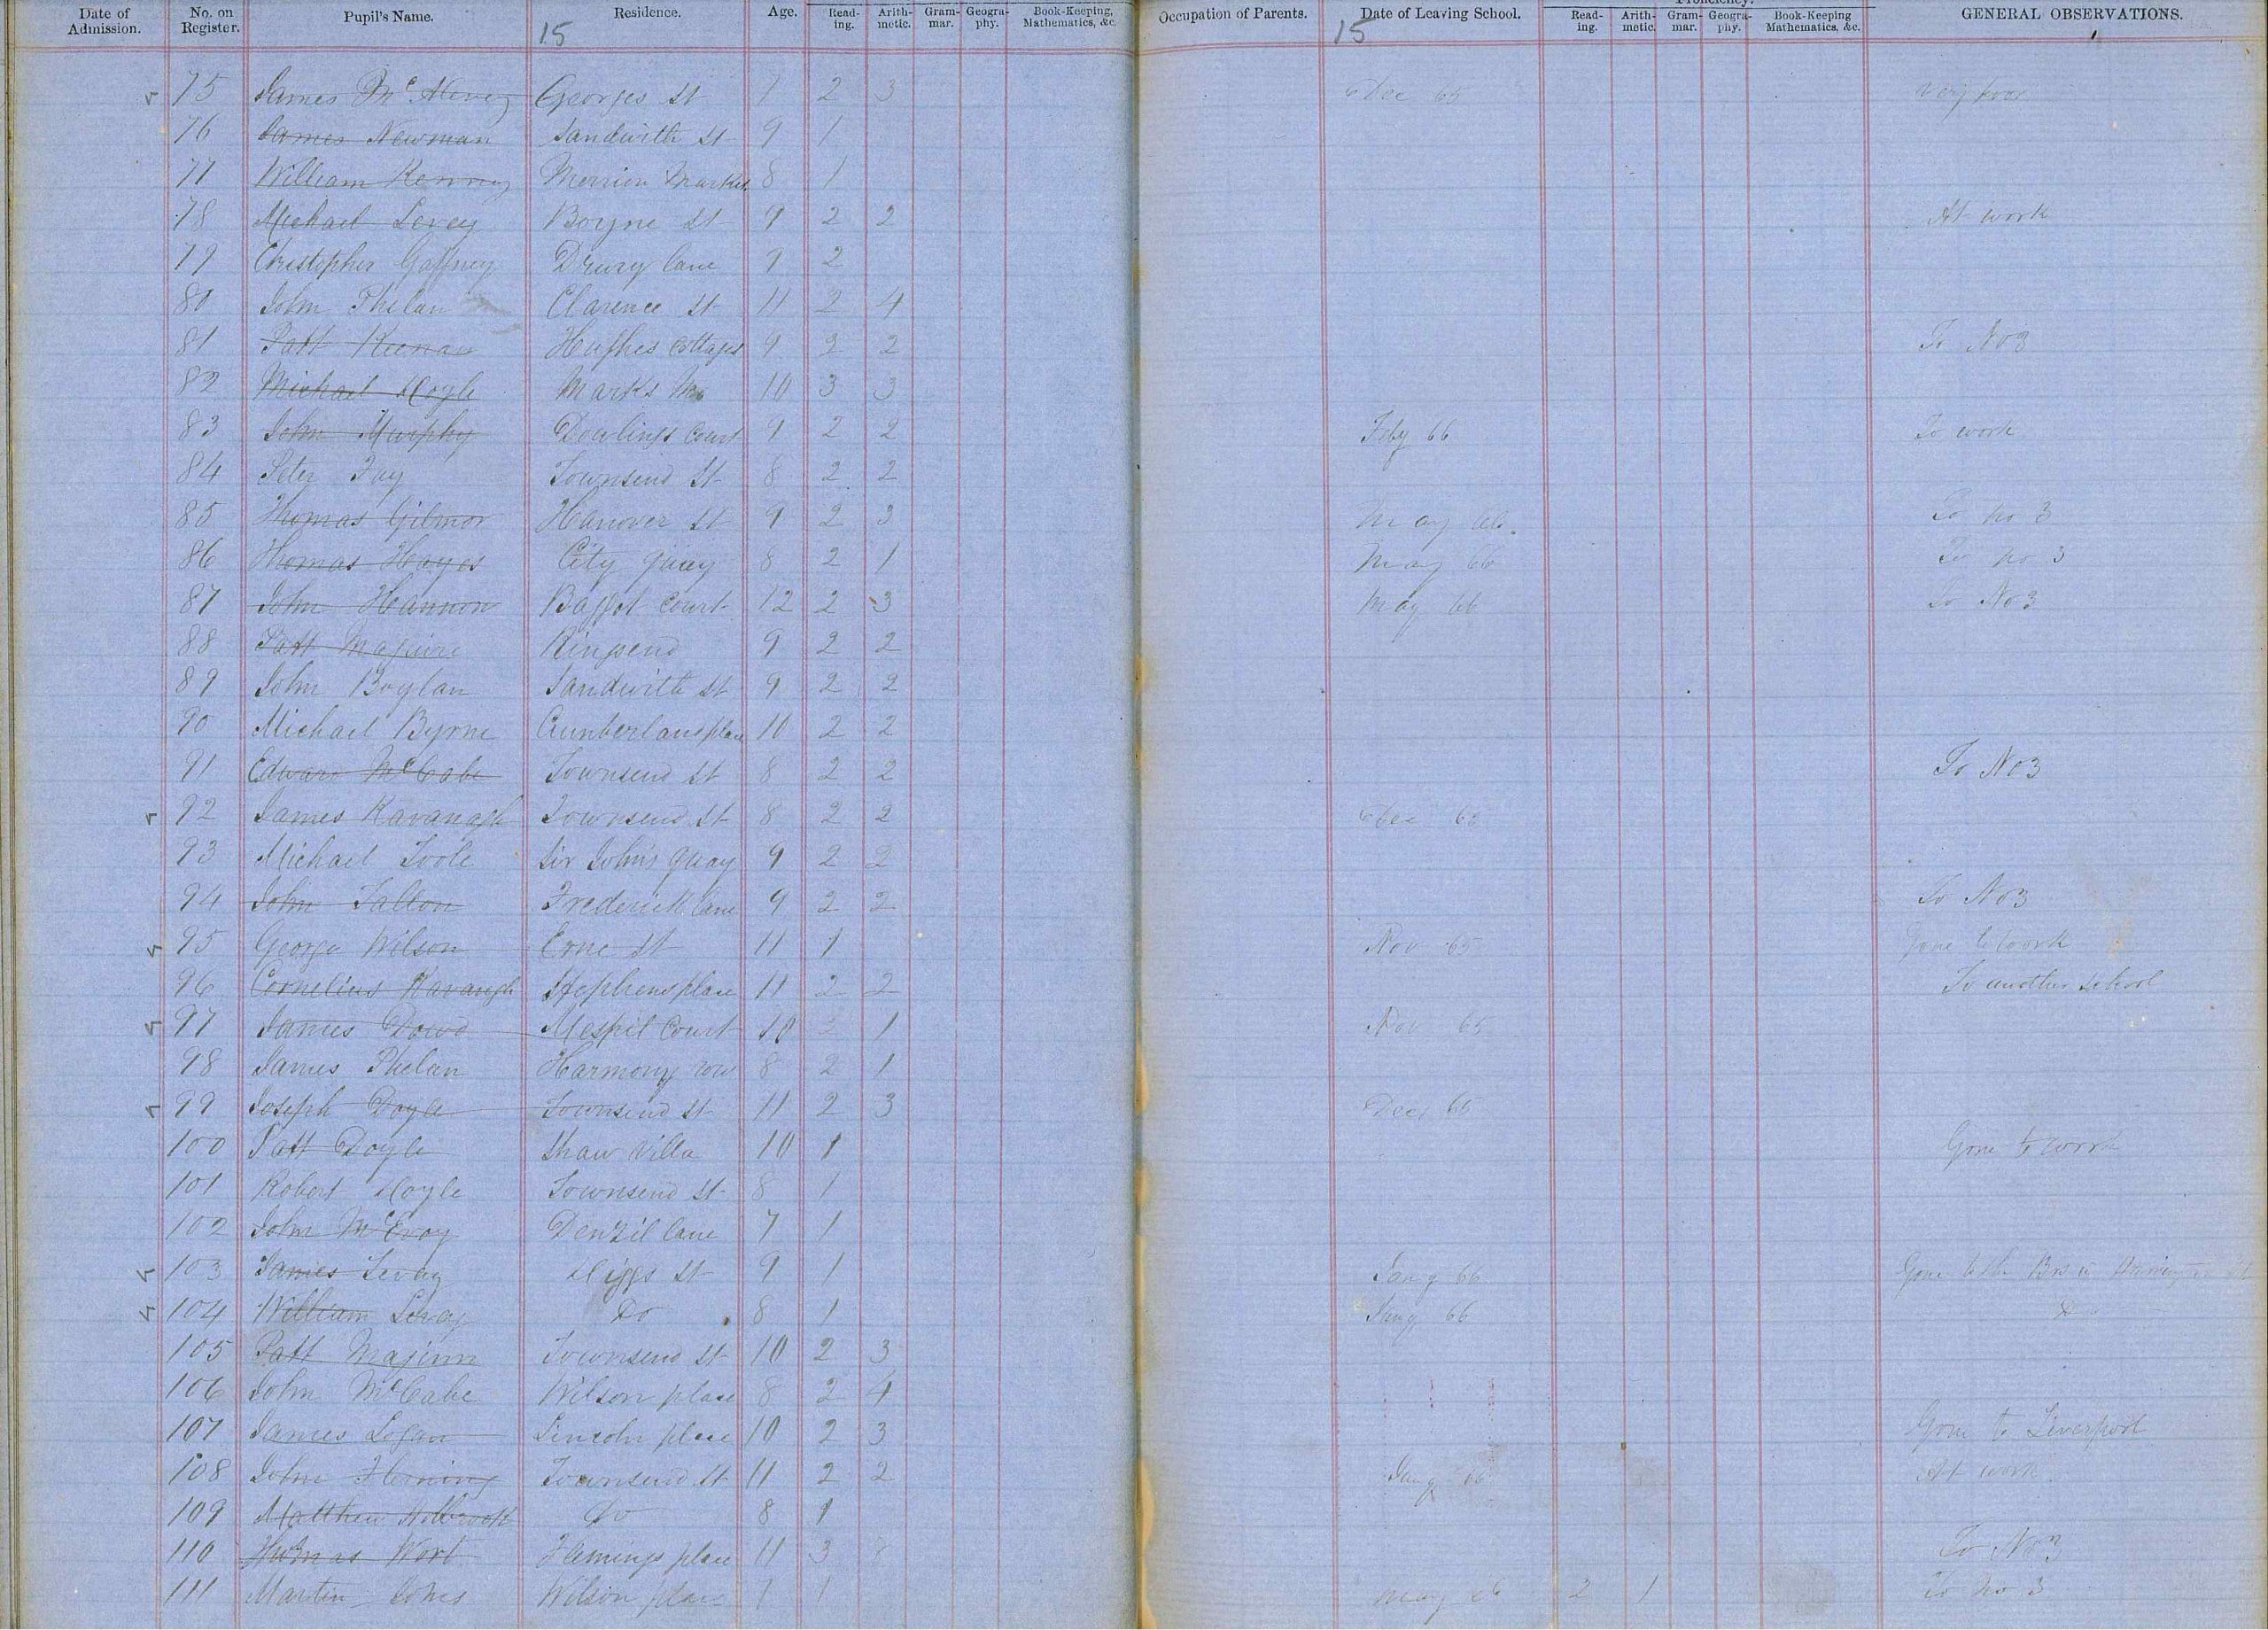 Date of Admission. No. on Register. Pupil's Name. Residence. Age. Read-ing. Arith-metic. Gram-mar. Geogra-phy. Book-Keeping, Mathematics, &c. Occupation of Parents. Date of Leaving School. Proficiency. Read-ing. Arith-metic. Gram-mar. Geogra-phy. Book-Keeping Mathematics, &c. GENERAL OBSERVATIONS.
15 15
75 James Georges St 7 2 3 Dec 65 very poor
76 James Newman Sandwith St 9 1
77 William Kenny Merrion Market 8 1
78 Michael Levey Boyne St 9 2 2 At work
79 Christopher Gaffney Drury Lane 9 2
80 John Phelan Clarence St 11 2 4
81 Patt Keenan Hughes Cottages 9 2 2 To No 3
82 Michael Hoyle Marks 10 3 3
83 John Murphy Dowlings Court 9 2 2 Feby 66 To work
84 Peter Fay Townsend St 8 2 2
85 Thomas Gilmor Hanover St 9 2 3 May 66. To no 3
86 Thomas Hayes City Quay 8 2 1 May 66 To no 3
87 John Hannon Baggot Court 12 2 3 May 66 To No 3
88 Patt Maguire Ringsend 9 2 2
89 John Boylan Sandwith St 9 2 2
90 Michael Byrne place 10 2 2
91 Edward McCabe Townsend St 8 2 2 To No 3
92 James Kavanagh Townsend St 8 2 2 Dec 65
93 Michael Toole Sir John's Quay 9 2 2
94 John Fallon Frederick Lane 9 2 2 To No 3
95 George Wilson Erne St 11 1 Nov 65 Gone to work
96 Cornelius Kavangh Stephens place 11 2 2 To another School
97 James Dowd Mespil Court 10 2 1 Nov 65
98 James Phelan Harmony row 8 2 1
99 Joseph Doyle Townsend St 11 2 3 Dec 65
100 Patt Doyle Shaw Villa 10 1 Gone to work
101 Robert Hoyle Townsend St 8 1
102 John McEvoy Denzil Lane 7 1
103 James Levey Diggs St 9 1 Jany 66 Gone to the
104 William Levey Do 8 1 Jany 66 Do
105 Patt Maginn Townsend St 10 2 3
106 John McCabe Wilson place 8 2 4
107 James Logan Lincoln place 10 2 3 Gone to Liverpool
108 John Fleming Townsend St 11 2 2 Jany 66 At work
109 Matthew Holbrook Do 8 1
110 Thomas Wort Flemings place 11 3 To No 3
111 Martin Jones Wilson place 7 1 May 66 2 1 To no 3